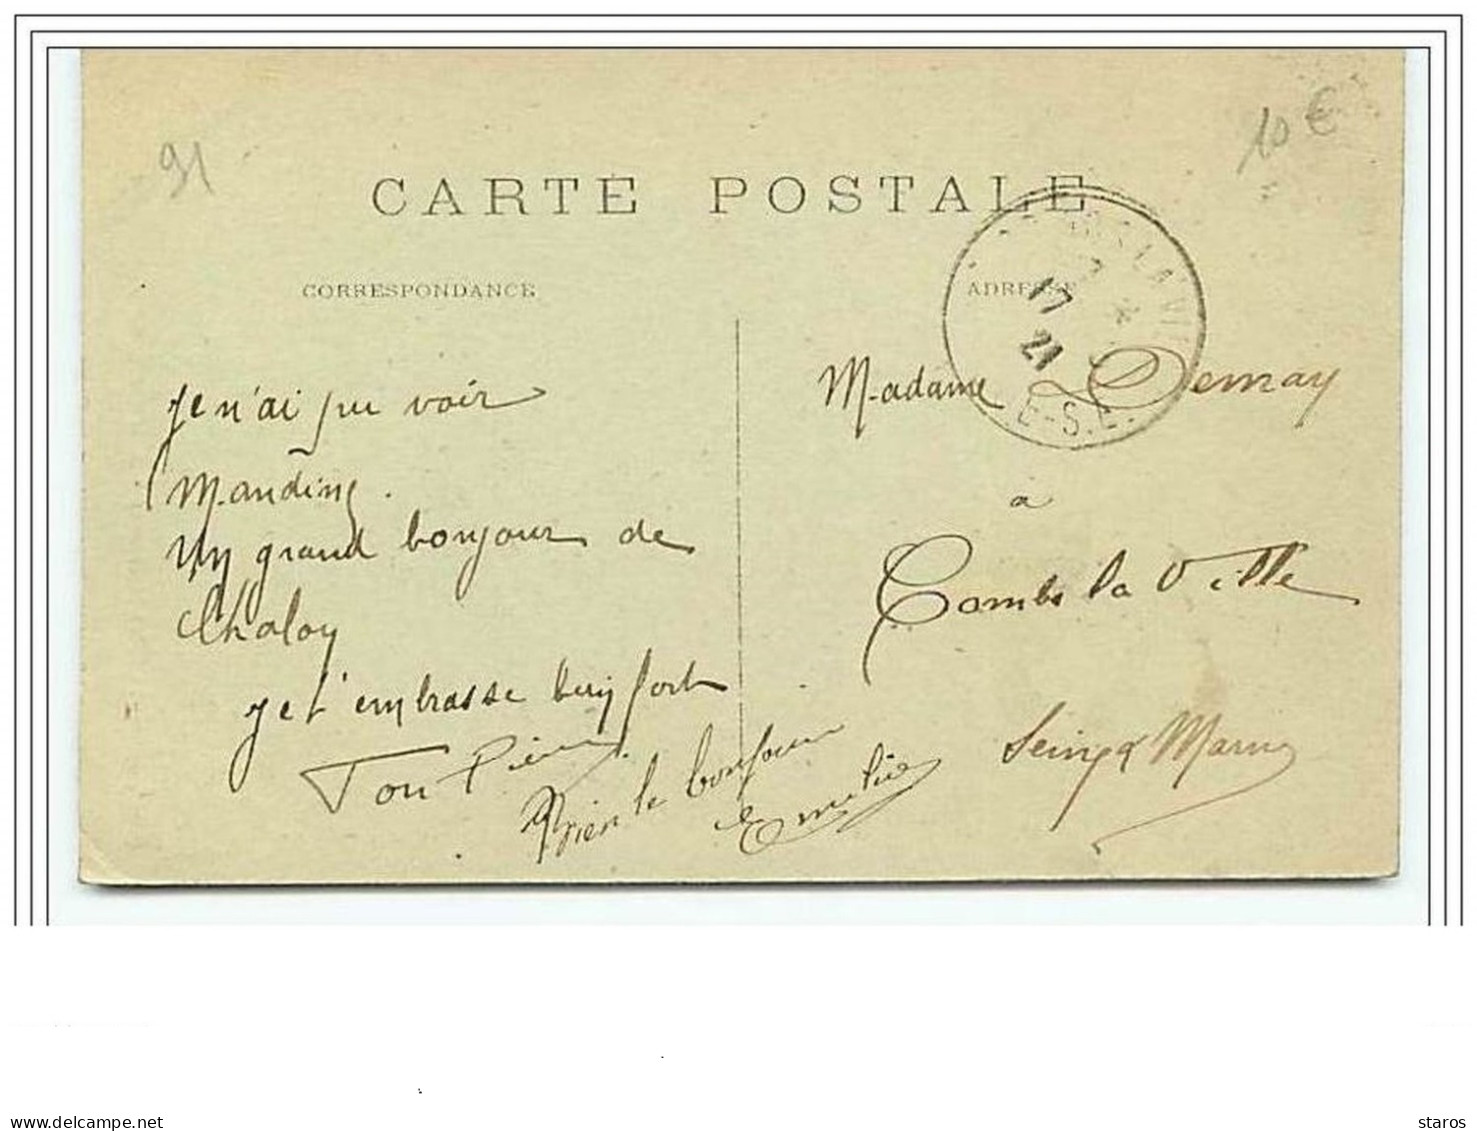 91
10 €
CARTE POSTALE
CORRESPONDANCE
ADRESSE
BS LA VI
17
21
E-S.E.
Je n'ai pu voir
Un grand bonjour de
Chaloy
Je t'embrasse bien fort
Ton Pierre
Bien le bonjour
Emilie
Madame Demay
a
Combs la Ville
Seine & Marne
delcampe.net
staros